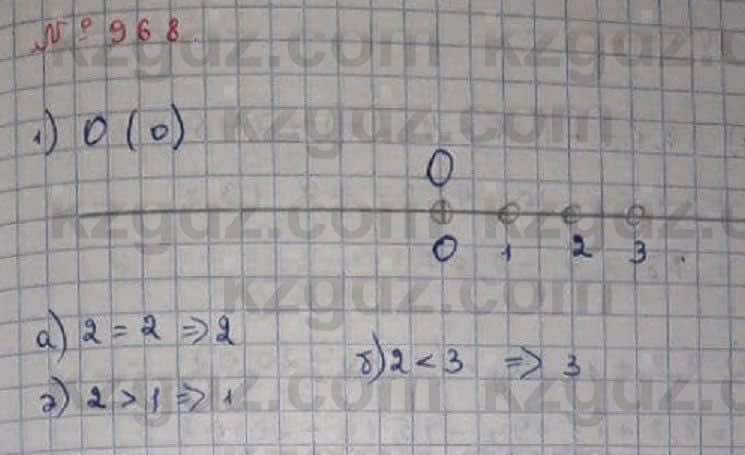 № 968.
1) O (0)
O
0 1 2 3
а) 2 = 2 => 2
б) 2 < 3 => 3
ә) 2 > 1 => 1
kzgdz.com kzgdz.com
kzgdz.com
kzgdz.com kzgdz.com
kzgdz.com
kzgdz.com kzgdz.com